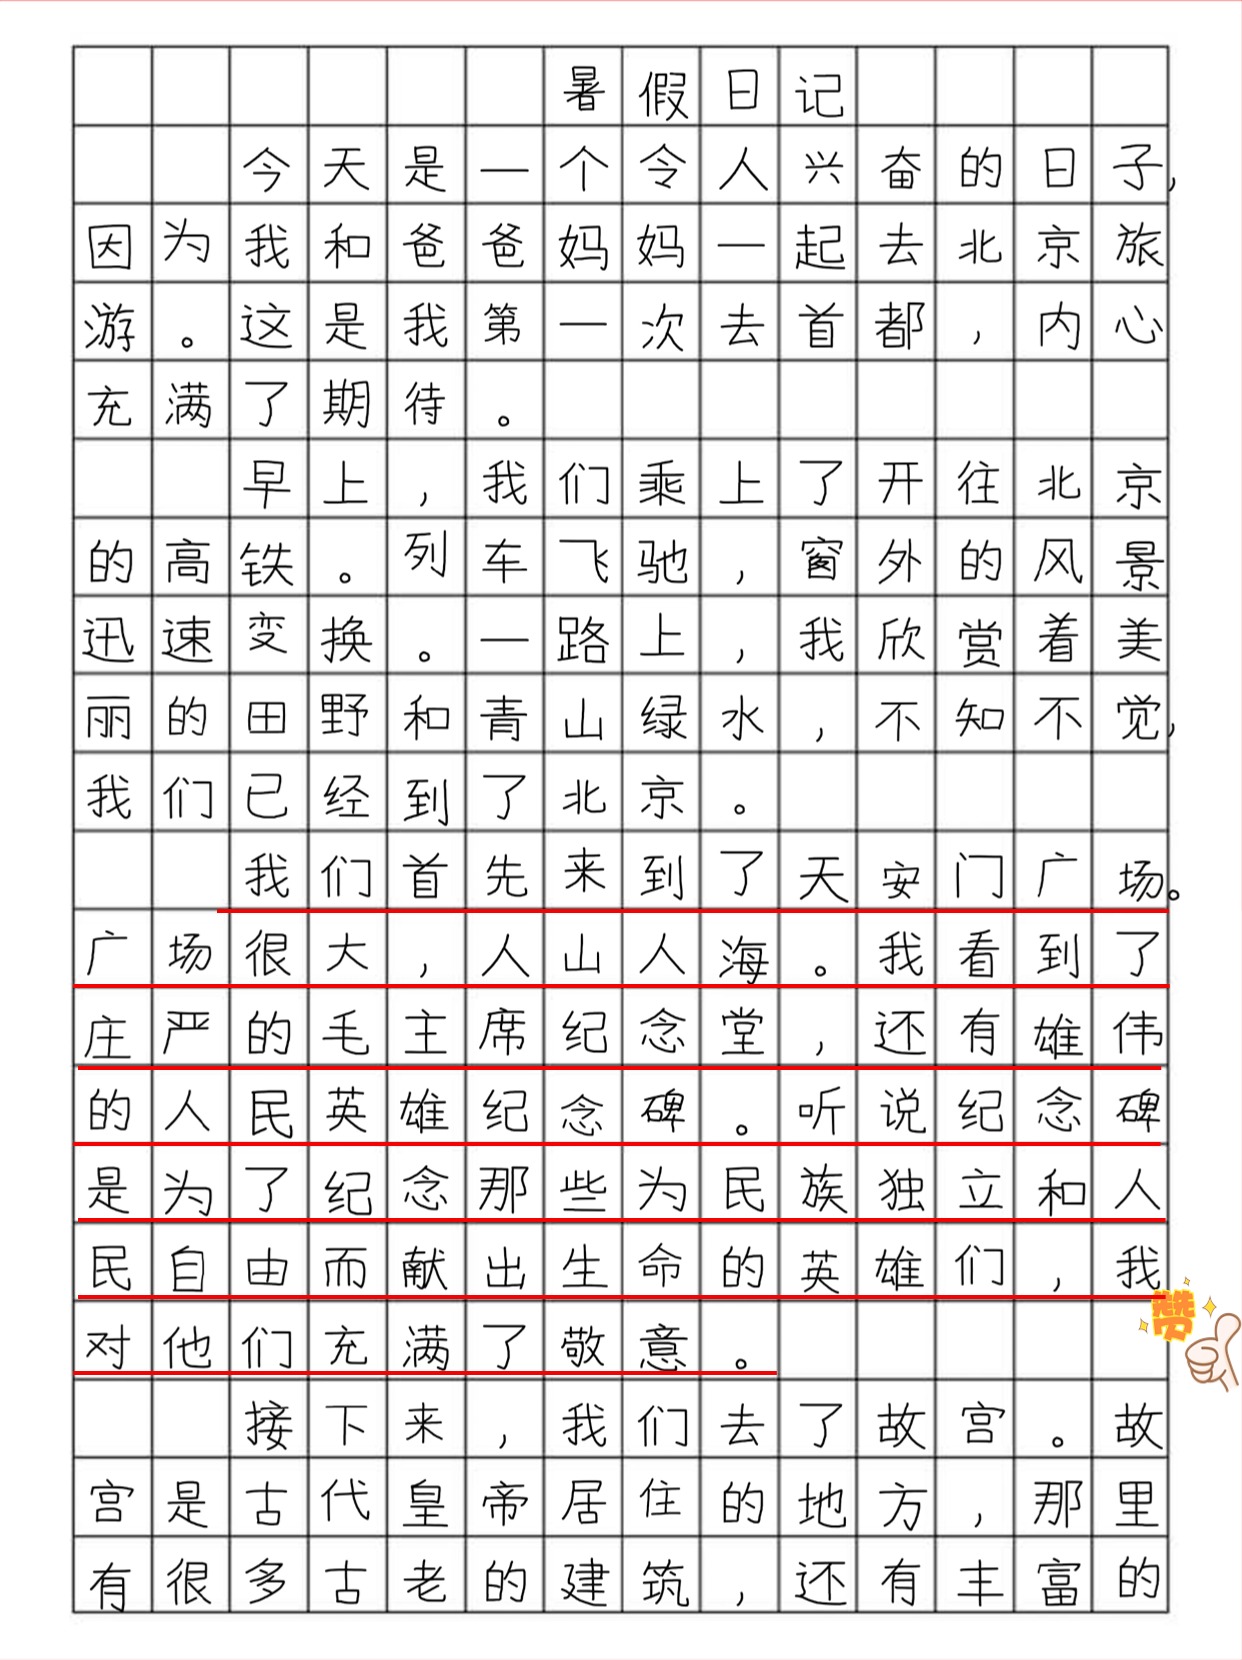 暑假日记
今天是一个令人兴奋的日子,
因为我和爸爸妈妈一起去北京旅
游。这是我第一次去首都,内心
充满了期待。
早上,我们乘上了开往北京
的高铁。列车飞驰,窗外的风景
迅速变换。一路上,我欣赏着美
丽的田野和青山绿水,不知不觉,
我们已经到了北京。
我们首先来到了天安门广场。
广场很大,人山人海。我看到了
庄严的毛主席纪念堂,还有雄伟
的人民英雄纪念碑。听说纪念碑
是为了纪念那些为民族独立和人
民自由而献出生命的英雄们,我
对他们充满了敬意。
赞
接下来,我们去了故宫。故
宫是古代皇帝居住的地方,那里
有很多古老的建筑,还有丰富的